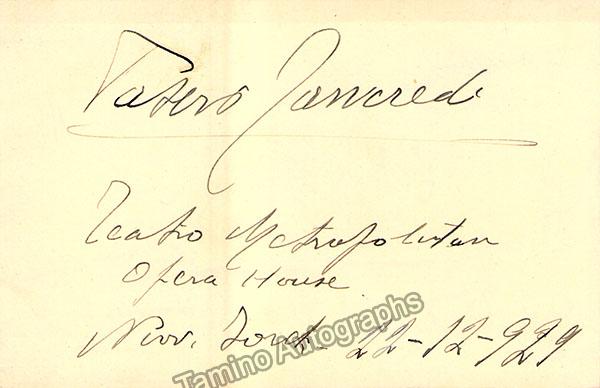 Pasero Tancredi
Teatro Metropolitan
Opera House
New York 22-12-929
Tamino Autographs